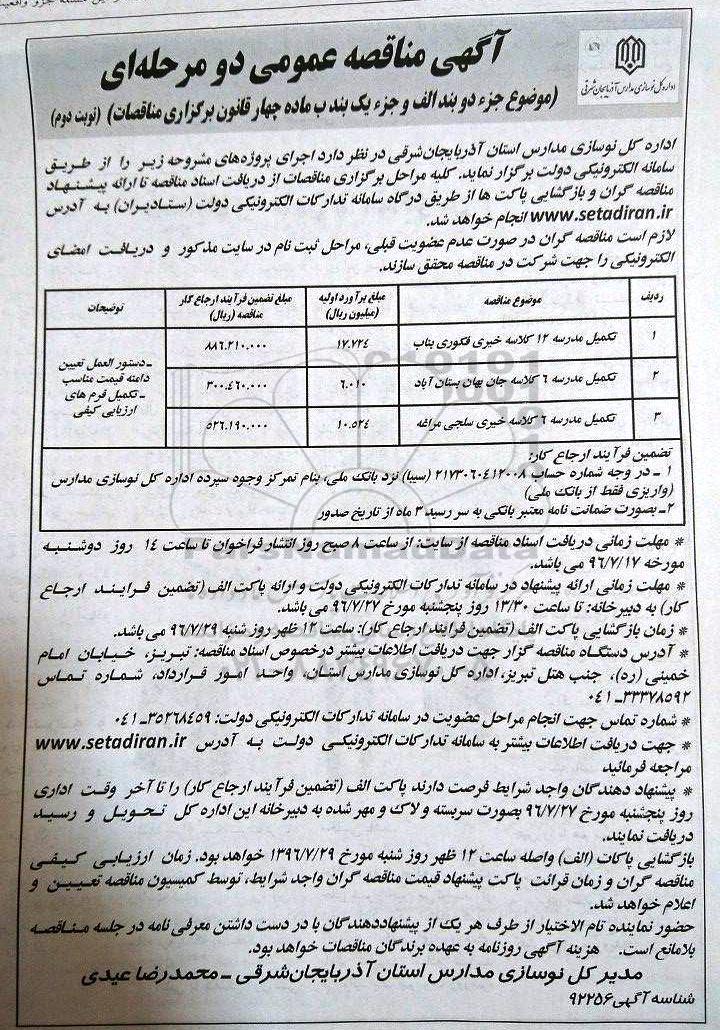 اداره کل نوسازی مدارس آذربایجان شرقی
آگهی مناقصه عمومی دو مرحله‌ای
(موضوع جزء دو بند الف و جزء یک بند ب ماده چهار قانون برگزاری مناقصات) (نوبت دوم)
اداره کل نوسازی مدارس استان آذربایجان‌شرقی در نظر دارد اجرای پروژه‌های مشروحه زیر را از طریق
سامانه الکترونیکی دولت برگزار نماید. کلیه مراحل برگزاری مناقصات از دریافت اسناد مناقصه تا ارائه پیشنهاد
مناقصه گران و بازگشایی پاکت ها از طریق درگاه سامانه تدارکات الکترونیکی دولت (ستادیران) به آدرس
www.setadiran.ir انجام خواهد شد.
لازم است مناقصه گران در صورت عدم عضویت قبلی، مراحل ثبت نام در سایت مذکور و دریافت امضای
الکترونیکی را جهت شرکت در مناقصه محقق سازند.
ردیف موضوع مناقصه مبلغ برآورد اولیه (میلیون ریال) مبلغ تضمین فرآیند ارجاع کار مناقصه (ریال) توضیحات
۱ تکمیل مدرسه ۱۲ کلاسه خیری فکوری بناب ۱۷.۷۲۴ ۸۸۶.۲۱۰.۰۰۰
۲ تکمیل مدرسه ۶ کلاسه جان بهان بستان آباد ۶.۰۱۰ ۳۰۰.۴۶۰.۰۰۰
۳ تکمیل مدرسه ۶ کلاسه خیری سلجی مراغه ۱۰.۵۲۴ ۵۲۶.۱۹۰.۰۰۰
ـ دستور العمل تعیین
دامنه قیمت مناسب
ـ تکمیل فرم های
ارزیابی کیفی
تضمین فرآیند ارجاع کار:
۱ ـ در وجه شماره حساب ۲۱۷۳۰۶۰۴۱۲۰۰۸ (سیبا) نزد بانک ملی، بنام تمرکز وجوه سپرده اداره کل نوسازی مدارس
(واریزی فقط از بانک ملی)
۲ـ بصورت ضمانت نامه معتبر بانکی به سر رسید ۳ ماه از تاریخ صدور
* مهلت زمانی دریافت اسناد مناقصه از سایت: از ساعت ۸ صبح روز انتشار فراخوان تا ساعت ۱۴ روز دوشنبه
مورخه ۹۶/۷/۱۷ می باشد.
* مهلت زمانی ارائه پیشنهاد در سامانه تدارکات الکترونیکی دولت و ارائه پاکت الف (تضمین فرایند ارجاع
کار) به دبیرخانه: تا ساعت ۱۳/۳۰ روز پنجشنبه مورخ ۹۶/۷/۲۷ می باشد.
* زمان بازگشایی پاکت الف (تضمین فرایند ارجاع کار): ساعت ۱۲ ظهر روز شنبه ۹۶/۷/۲۹ می باشد.
* آدرس دستگاه مناقصه گزار جهت دریافت اطلاعات بیشتر درخصوص اسناد مناقصه: تبریز، خیابان امام
خمینی (ره)، جنب هتل تبریز، اداره کل نوسازی مدارس استان، واحد امور قرارداد، شماره تماس
۳۳۳۷۸۵۹۲ـ ۰۴۱
* شماره تماس جهت انجام مراحل عضویت در سامانه تدارکات الکترونیکی دولت: ۳۵۲۶۸۴۵۹ـ ۰۴۱
* جهت دریافت اطلاعات بیشتر به سامانه تدارکات الکترونیکی دولت به آدرس www.setadiran.ir
مراجعه فرمائید
* پیشنهاد دهندگان واجد شرایط فرصت دارند پاکت الف (تضمین فرآیند ارجاع کار) را تا آخر وقت اداری
روز پنجشنبه مورخ ۹۶/۷/۲۷ بصورت سربسته و لاک و مهر شده به دبیرخانه این اداره کل تحویل و رسید
دریافت نمایند.
بازگشایی پاکات (الف) واصله ساعت ۱۲ ظهر روز شنبه مورخ ۱۳۹۶/۷/۲۹ خواهد بود. زمان ارزیابی کیفی
مناقصه گران و زمان قرائت پاکت پیشنهاد قیمت مناقصه گران واجد شرایط، توسط کمیسیون مناقصه تعیین و
اعلام خواهد شد.
حضور نماینده تام الاختیار از طرف هر یک از پیشنهاددهندگان با در دست داشتن معرفی نامه در جلسه مناقصه
بلامانع است. هزینه آگهی روزنامه به عهده برندگان مناقصات خواهد بود.
مدیر کل نوسازی مدارس استان آذربایجان‌شرقی ـ محمدرضا عیدی
شناسه آگهی ۹۲۲۵۶